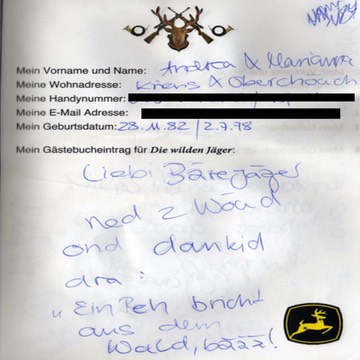 Mein Vorname und Name: Andrea & Marianna
Meine Wohnadresse: Kriens & Oberchöach
Meine Handynummer:
Meine E-Mail Adresse:
Mein Geburtsdatum: 28.11.82 / 2.7.78
Mein Gästebucheintrag für Die wilden Jäger:
Liebi Bärejäger
ned z Wöud
ond dankid
dra:
"Ein Reh bricht
aus dem
Wald, bäzz!